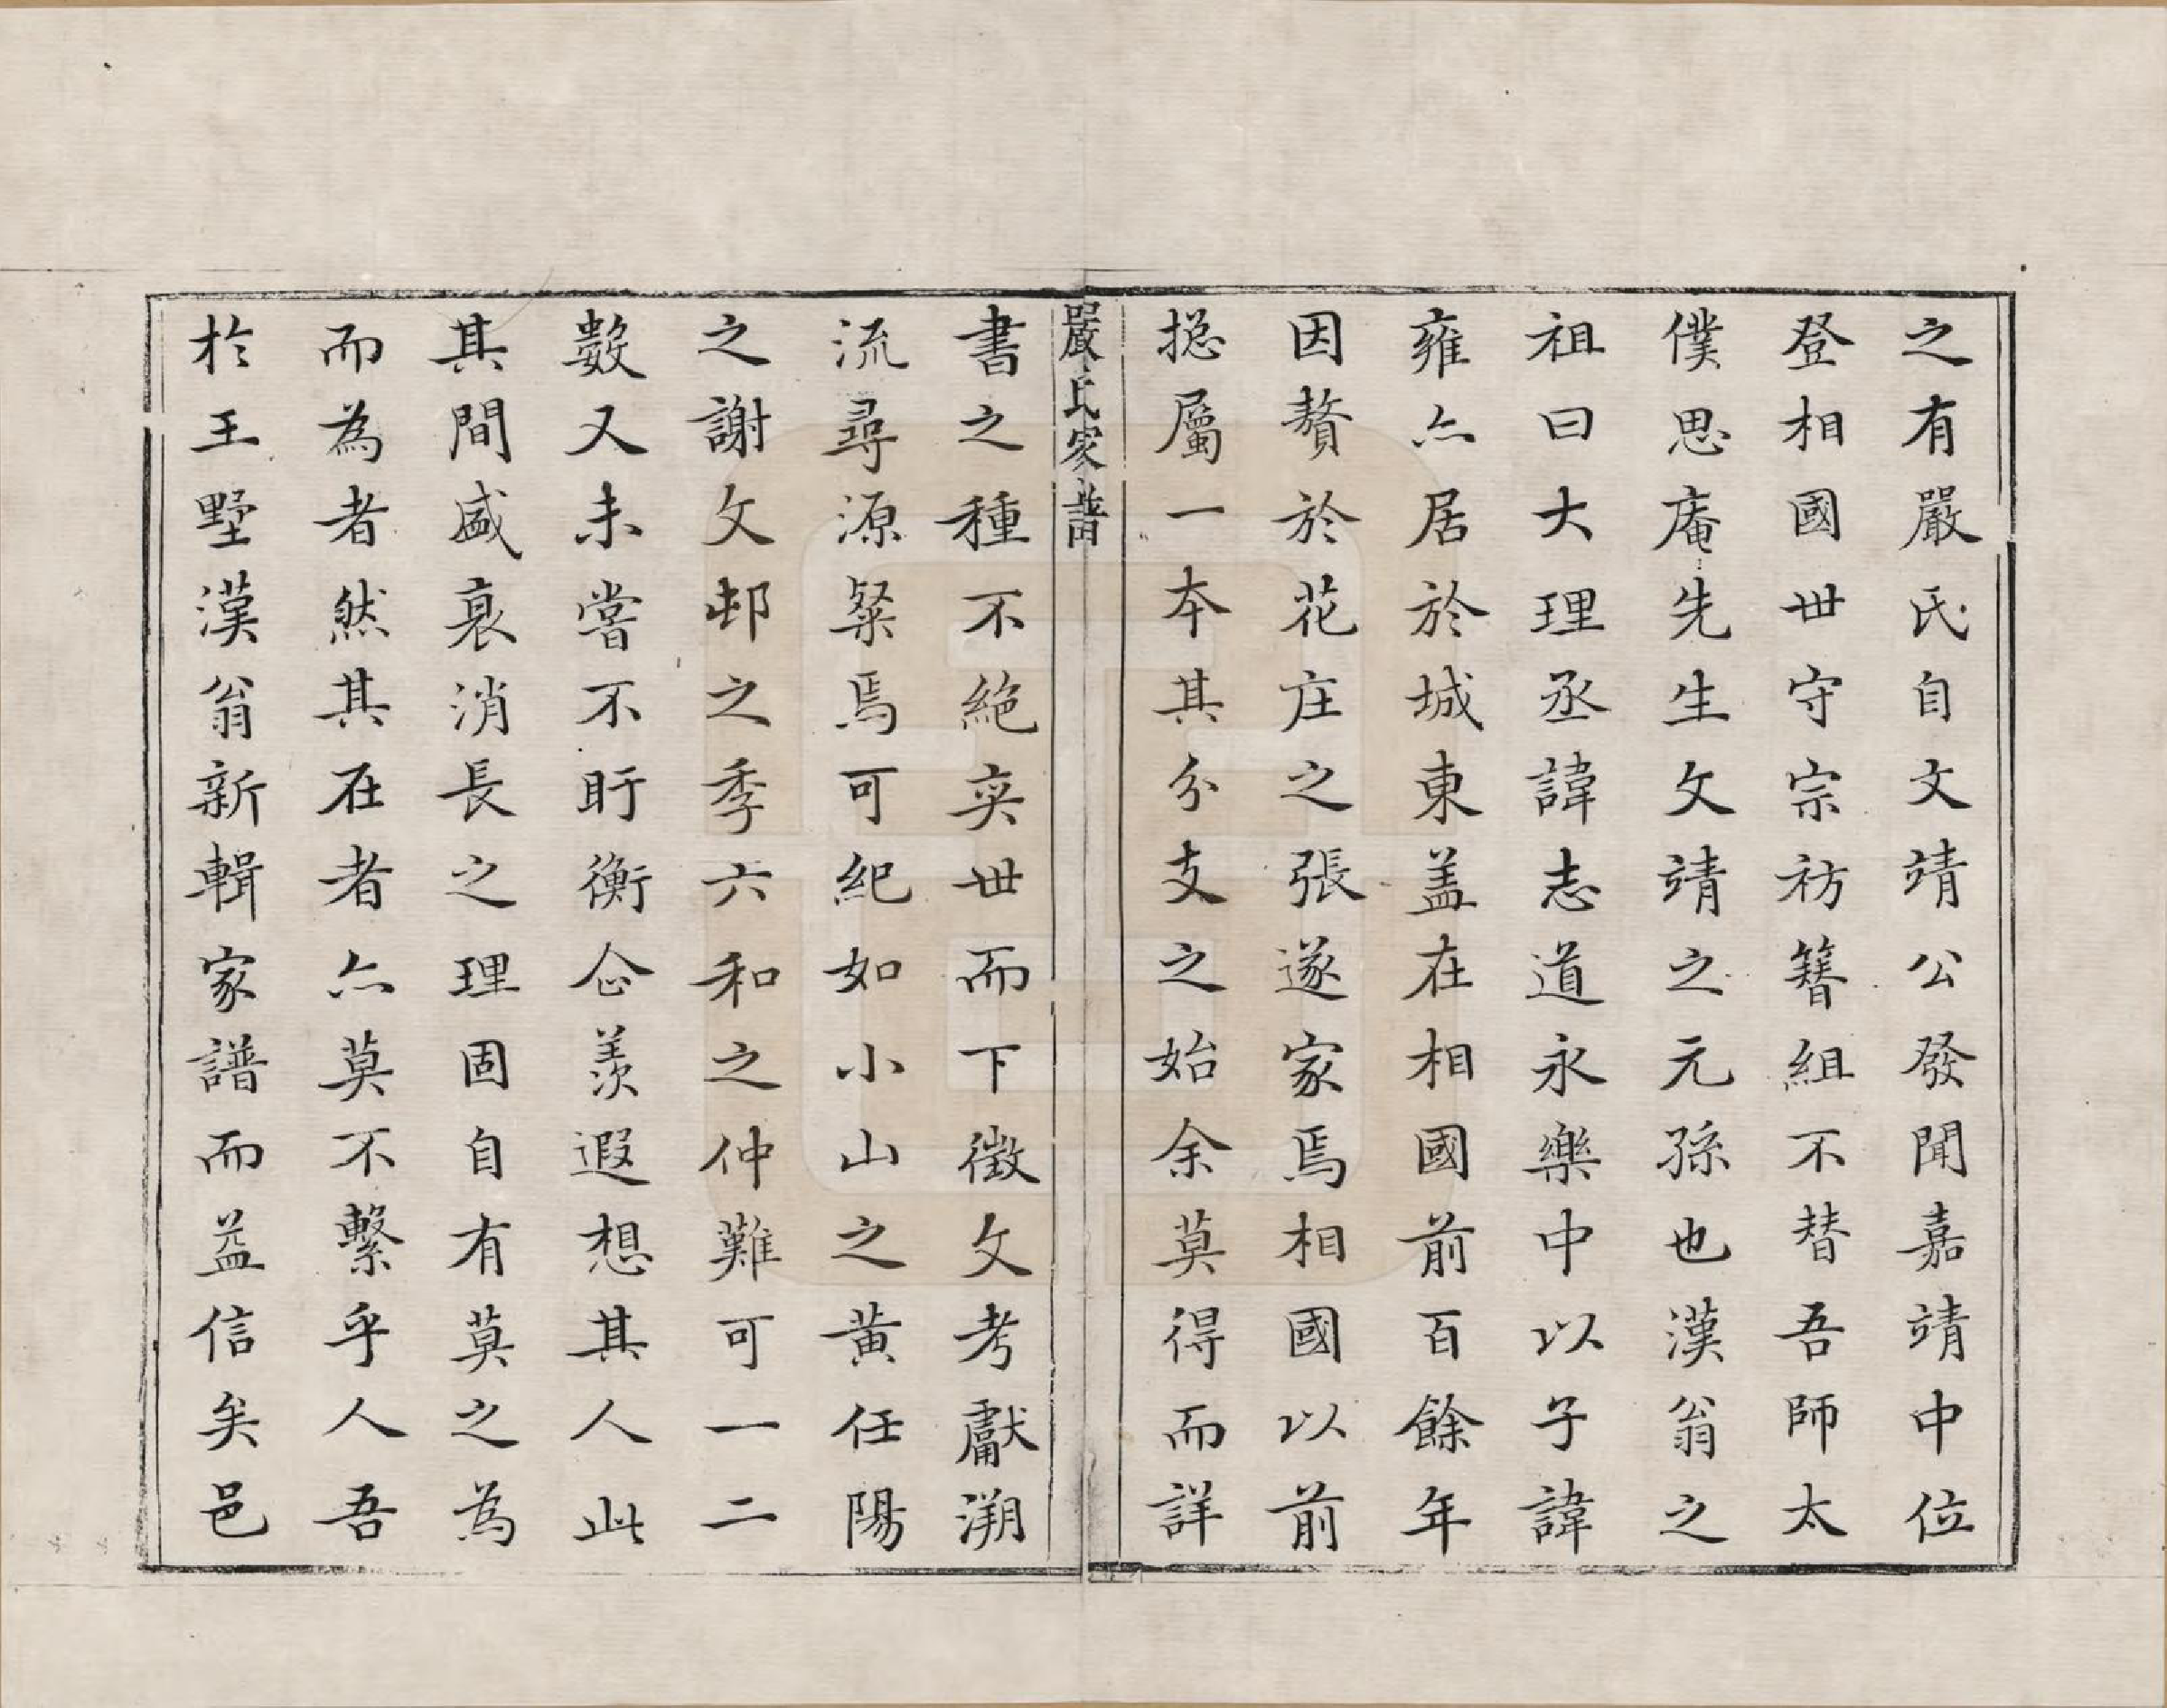 之有嚴氏自文靖公發聞嘉靖中位
登相國世守宗祊簪組不替吾師太
僕思庵先生文靖之元孫也漢翁之
祖曰大理丞諱志道永樂中以子諱
雍亦居於城東盖在相國前百餘年
因贅於花庄之張遂家焉相國以前
摠屬一本其分支之始余莫得而詳
嚴氏家譜
書之種不絶奕世而下徵文考獻溯
流尋源粲焉可紀如小山之黄任陽
之謝文邨之季六和之仲難可一二
數又未嘗不盱衡企羨遐想其人此
其間盛衰消長之理固自有莫之為
而為者然其在者亦莫不繫乎人吾
於王墅漢翁新輯家譜而益信矣邑